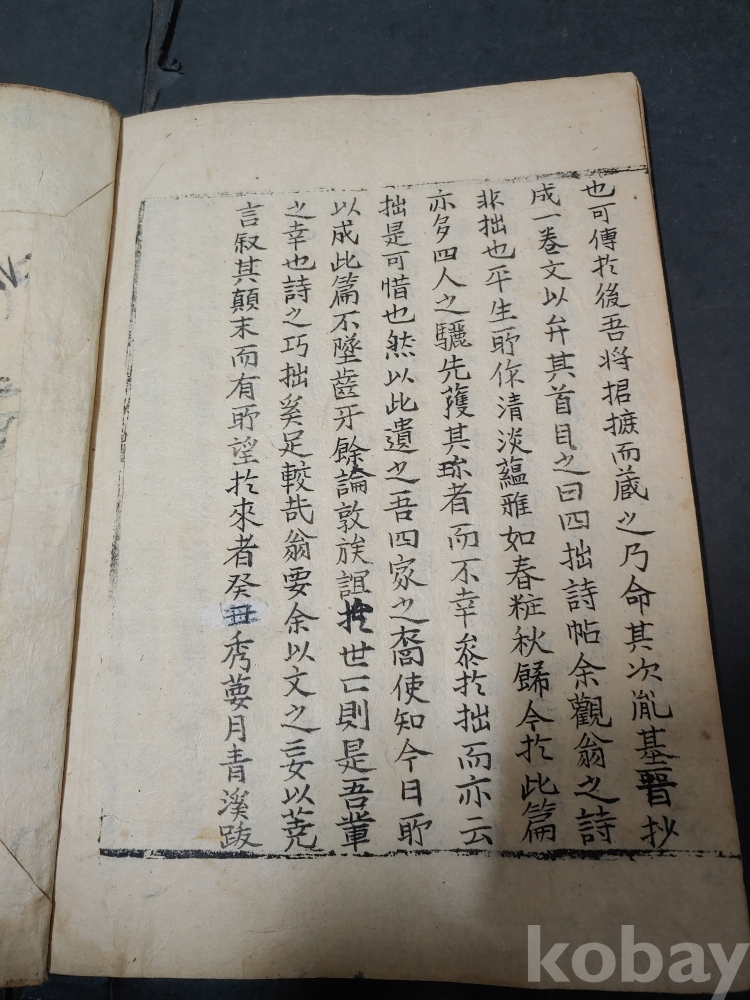 也可傳於後吾將捃摭而蔵之乃命其次胤基晋抄
成一卷文以弁其首目之曰四拙詩帖余觀翁之詩
非拙也平生所作清淡蘊雅如春粧秋歸今於此篇
亦多四人之驪先蒦其珎者而不幸叅於拙而亦云
拙是可惜也然以此遺之吾四家之裔使知今日所
以成此篇不墜齒牙餘論敦族誼於世亡則是吾軰
之幸也詩之巧拙奚足較哉翁要余以文之妄以荛
言叙其顛末而有所望於來者癸丑秀葽月青溪跋
kobay